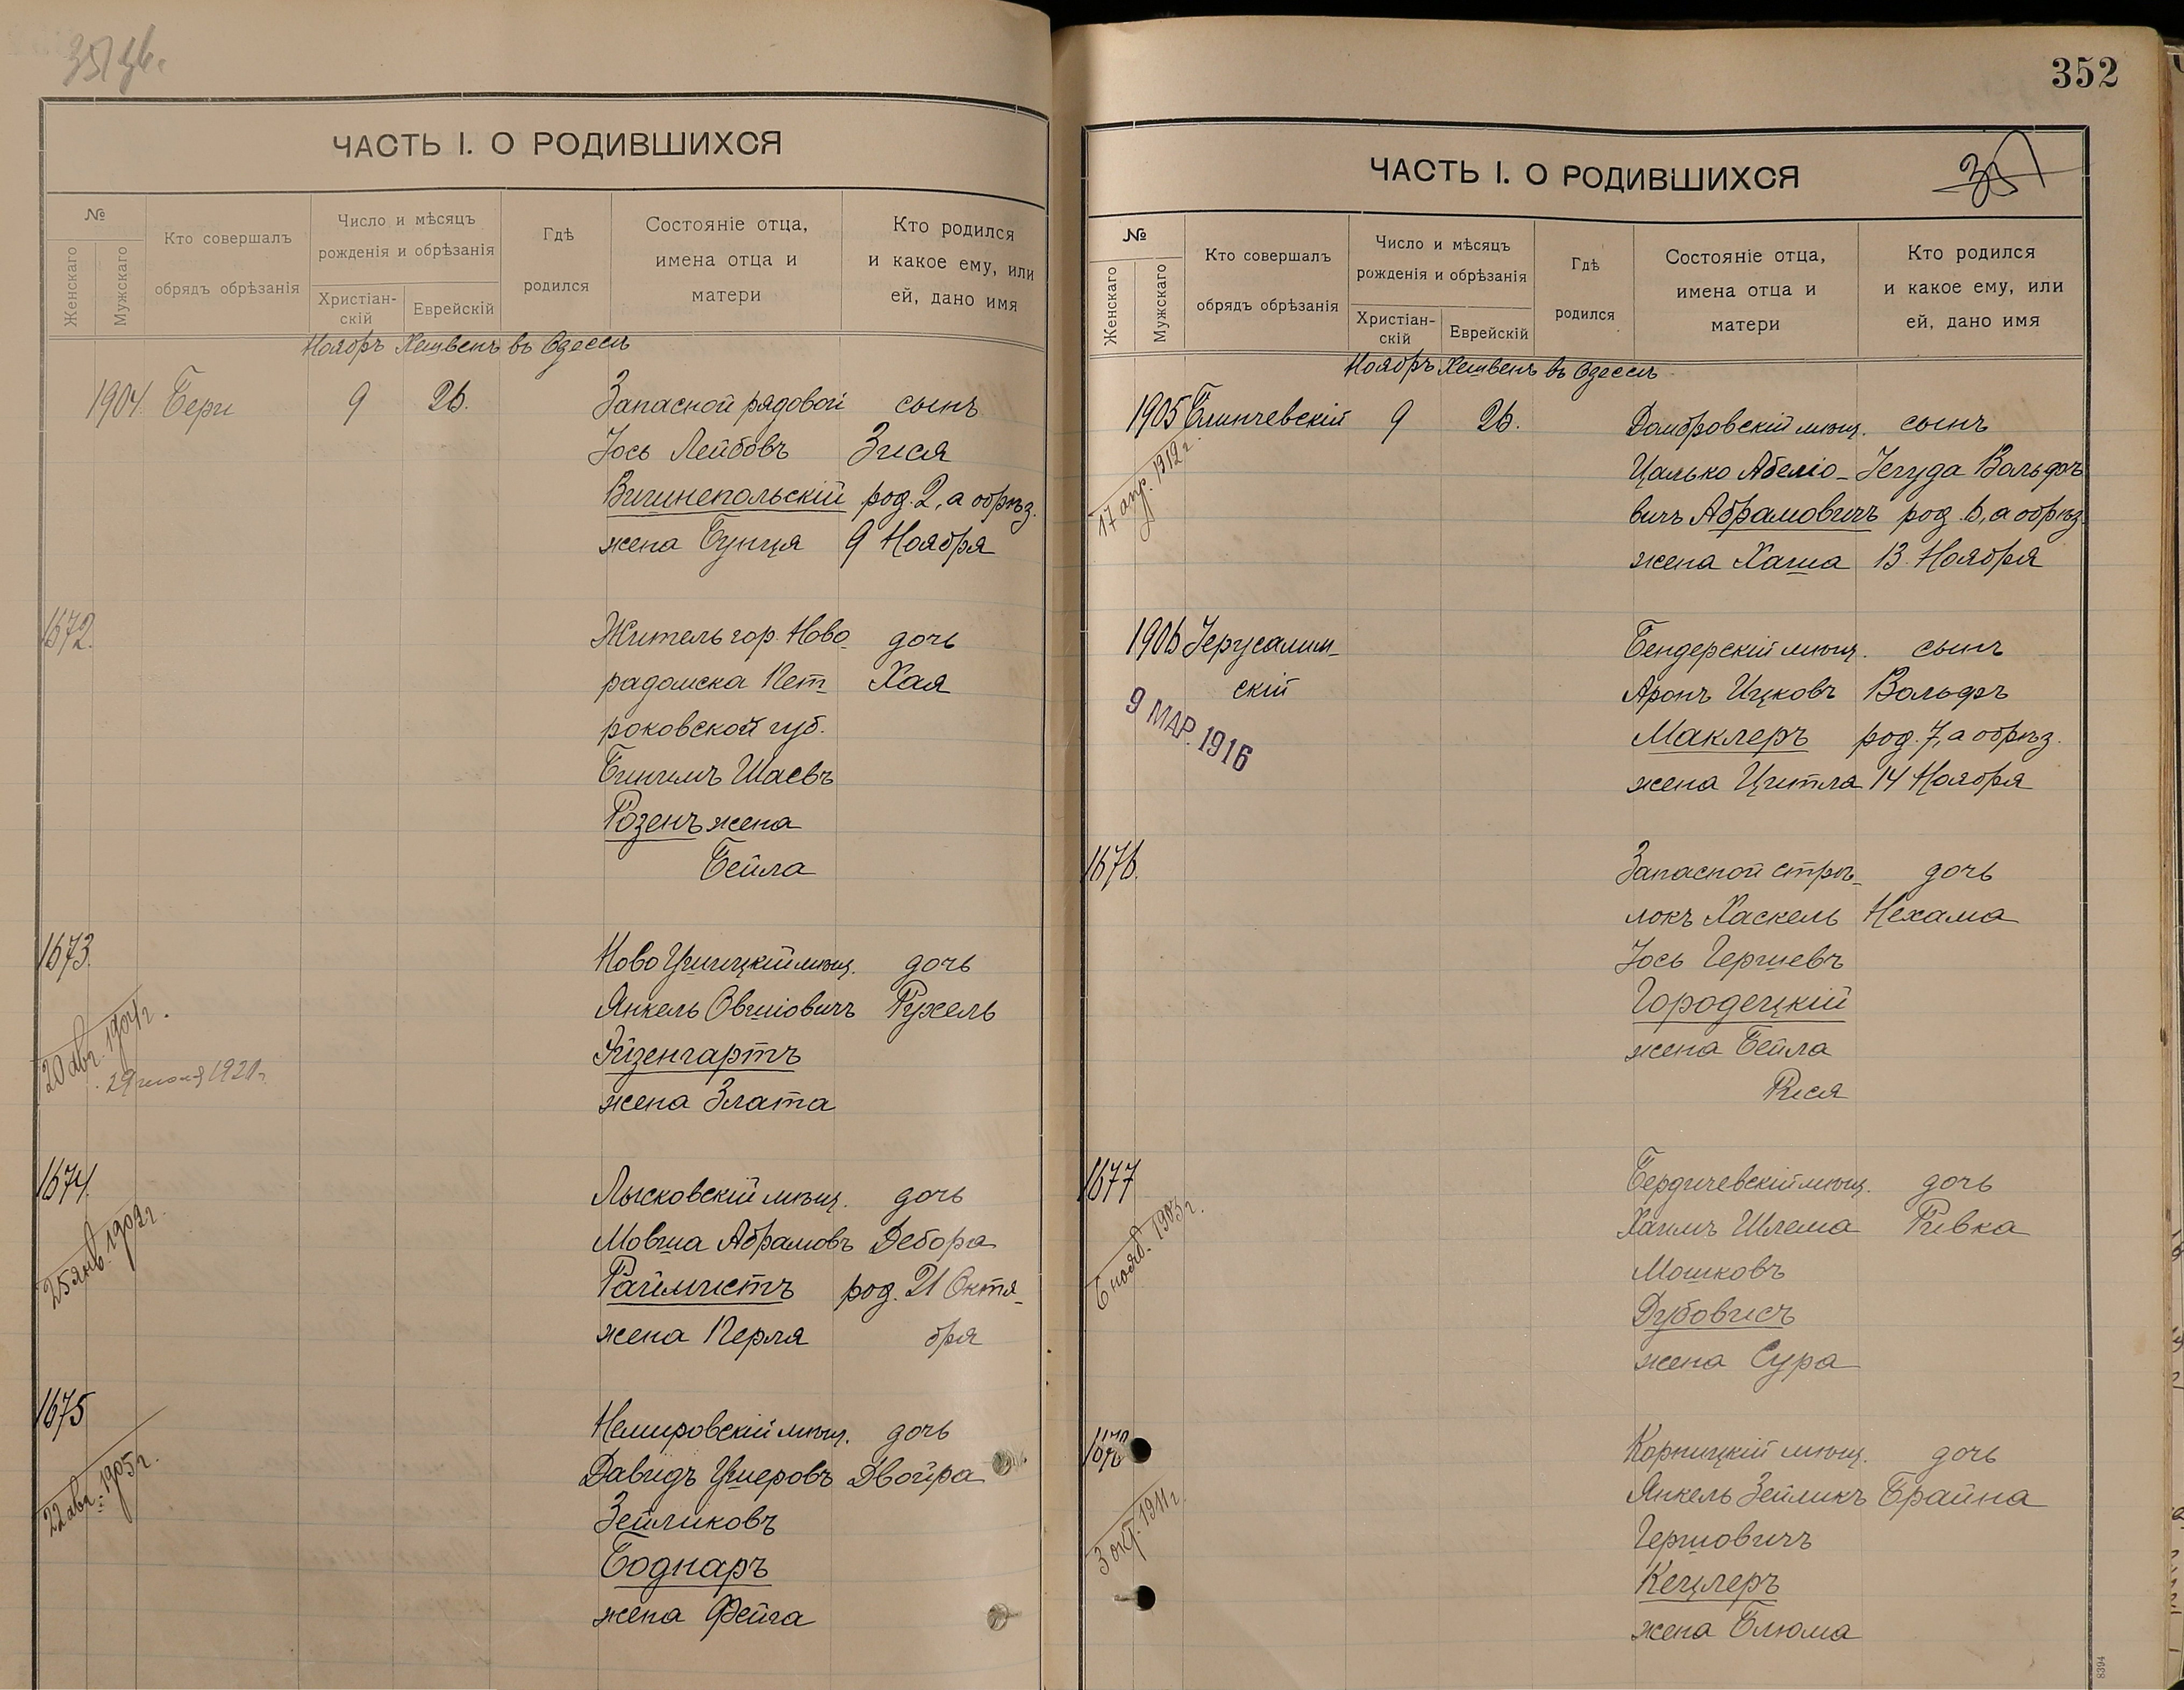 ЧАСТЬ I. О РОДИВШИХСЯ
№
Женскаго
Мужскаго
Кто совершалъ
обрядъ обрѣзанія
Число и мѣсяцъ
рожденія и обрѣзанія
Христіан-
скій
Еврейскій
Гдѣ
родился
Состояніе отца,
имена отца и
матери
Кто родился
и какое ему, или
ей, дано имя
Ноябрь Хешвенъ въ Одессѣ
1904. Бери 9 26. Запасной рядовой сынъ
Іось Лейбовъ Зися
Вишнепольскій род. 2, а обрѣз.
жена Бунця 9 Ноября
1672. Житель гор. Ново- дочь
радомска Пет- Хая
роковской губ.
Бинимъ Шаевъ
Розенъ жена
Бейла
1673. Ново Ушицкій мѣщ. дочь
Янкель Овшіовичъ Рухель
Айзенгартъ
20 авг. 1904 г.
29 июня 1920 г.
жена Злата
1674. Лысковскій мѣщ. дочь
25 янв. 1902 г.
Мовша Абрамовъ Дебора
Раймистъ род. 21 Октя-
жена Перля бря
1675 Немировскій мѣщ. дочь
22 авг. 1905 г.
Давидъ Ушеровъ Двойра
Зейликовъ
Боднаръ
жена Фейга
352
ЧАСТЬ I. О РОДИВШИХСЯ
351
№
Женскаго
Мужскаго
Кто совершалъ
обрядъ обрѣзанія
Число и мѣсяцъ
рожденія и обрѣзанія
Христіан-
скій
Еврейскій
Гдѣ
родился
Состояніе отца,
имена отца и
матери
Кто родился
и какое ему, или
ей, дано имя
Ноябрь Хешвенъ въ Одессѣ
1905 Блинчевскій 9 26. Домбровскій мѣщ. сынъ
17 апр. 1912 г.
Цалько Абеліо- Іегуда Вольфъ
вичъ Абрамовичъ род. 6, а обрѣз.
жена Хаша 13 Ноября
1906 Іерусалим- Бендерскій мѣщ. сынъ
скій Аронъ Ицковъ Вольфъ
9 МАР. 1916
Маклеръ род. 7, а обрѣз.
жена Цитля 14 Ноября
1676. Запасной стрѣ- дочь
локъ Хаскель Нехама
Іось Гершевъ
Городецкій
жена Бейла
Рися
1677 Бердичевскій мѣщ. дочь
6 нояб. 1903 г.
Хаимъ Шлема Ривка
Мошковъ
Дубовисъ
жена Сура
мѣщ. дочь
3 окт. 1911 г.
Янкель Зейликъ Брайна
Гершовичъ
Кецлеръ
жена Блюма
8394